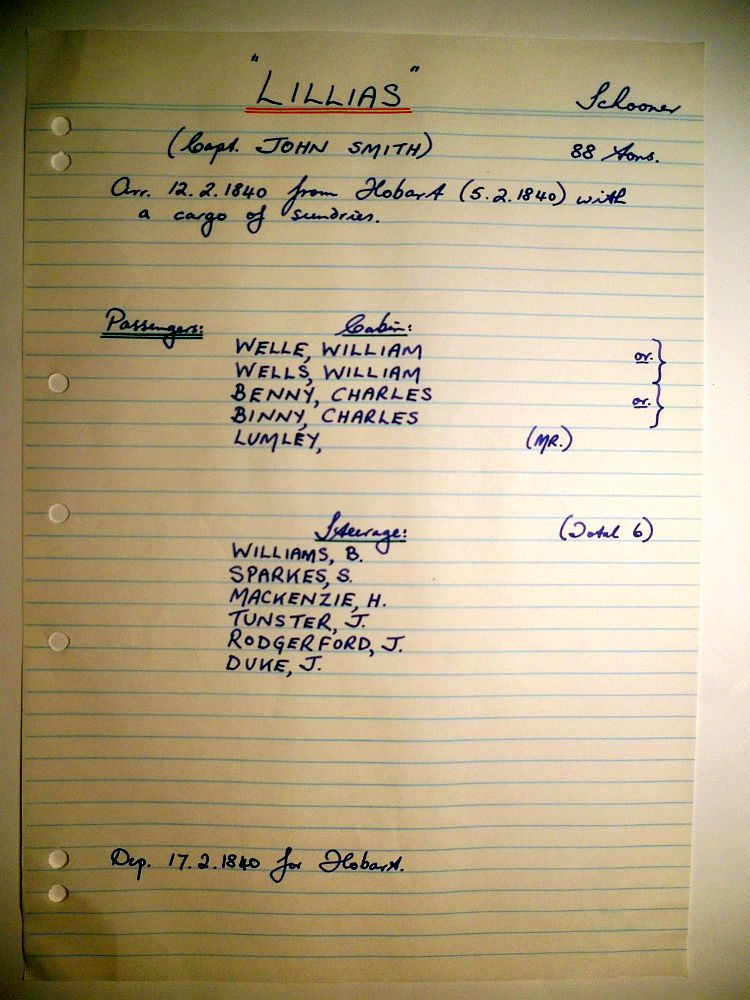 "LILLIAS" Schooner
(Capt. JOHN SMITH) 88 tons.
Arr. 12.2.1840 from Hobart (5.2.1840) with
a cargo of sundries.
Passengers: Cabin:
WELLE, WILLIAM or. }
WELLS, WILLIAM
BENNY, CHARLES or. }
BINNY, CHARLES
LUMLEY, (MR.)
Steerage: (Total 6)
WILLIAMS, B.
SPARKES, S.
MACKENZIE, H.
TUNSTER, J.
RODGERFORD, J.
DUKE, J.
Dep. 17.2.1840 for Hobart.